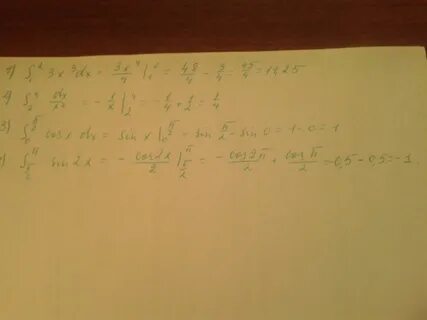 1) ∫₁² 3x³dx = 3x⁴/4 |₁² = 48/4 - 3/4 = 45/4 = 11,25
2) ∫₂⁴ dx/x² = - 1/x |₂⁴ = - 1/4 + 1/2 = 1/4
3) ∫₀^(π/2) cosx dx = sin x |₀^(π/2) = sin π/2 - sin 0 = 1 - 0 = 1
) ∫_(π/2)^π sin 2x = - cos2x/2 |_(π/2)^π = - cos2π/2 + cosπ/2 = -0,5 - 0,5 = -1